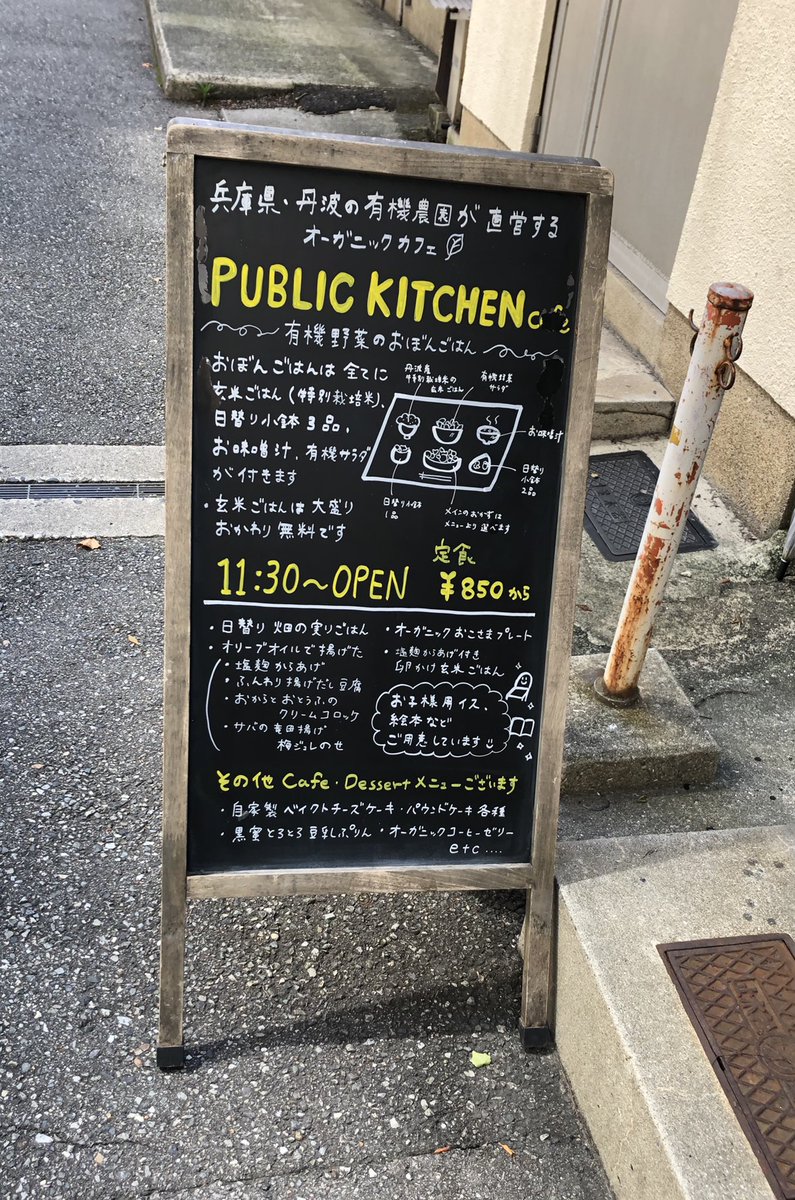 兵庫県・丹波の有機農園が直営する
オーガニックカフェ
PUBLIC KITCHEN cafe
有機野菜のおぼんごはん
・おぼんごはんは全てに
玄米ごはん(特別栽培米)、
日替り小鉢3品、
お味噌汁、有機サラダ
が付きます
・玄米ごはんは大盛り
おかわり無料です
丹波産
特別栽培米の
玄米ごはん
有機野菜
サラダ
お味噌汁
日替り
小鉢
2品
日替り小鉢
1品
メインのおかずは
メニューより選べます
定食
11:30〜OPEN ¥850から
・日替り 畑の実りごはん
・オリーブオイルで揚げた
・塩麹からあげ
・ふんわり揚げだし豆腐
・おからとおとうふの
クリームコロッケ
・サバの竜田揚げ
梅ジュレのせ
・オーガニックおこさまプレート
・塩麹からあげ付き
卵かけ玄米ごはん
お子様用イス、
絵本など
ご用意しています
その他 Cafe・Dessertメニューございます
・自家製 ベイクトチーズケーキ・パウンドケーキ各種
・黒蜜とろとろ豆乳しぷりん・オーガニックコーヒーゼリー
etc....